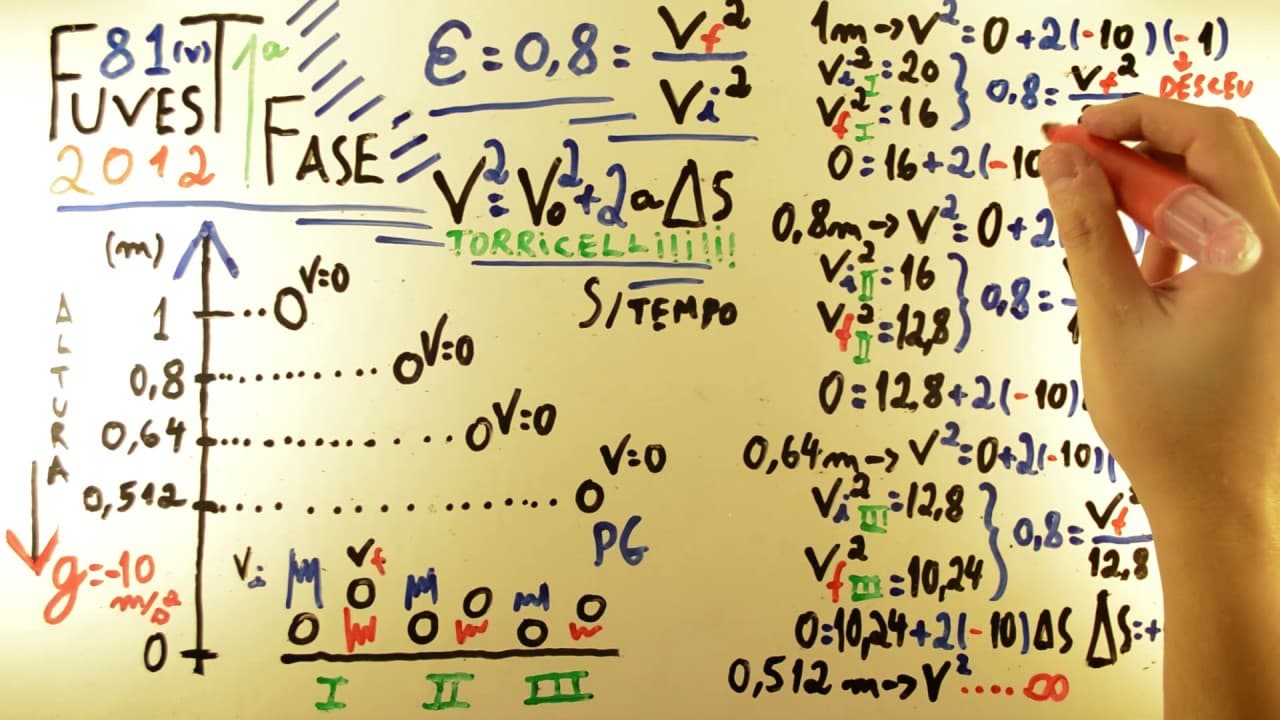 FUVEST 81(V) 1ª FASE
2012
ε=0,8= Vf²/Vi²
V²=V₀²+2aΔS
TORRiCELLi!i!i!!
S/TEMPO
(m)
ALTURA
1 V=0
0,8 V=0
0,64 V=0
0,512 V=0
PG
g=-10
m/s²
Vi Vf
0
I II III
1m→V²=0+2(-10)(-1)
DESCEU
Vi²I=20
Vf²I=16
0,8= Vf²
0=16+2(-10
0,8m→V²=0+2
Vi²II=16
Vf²II=12,8
0,8=
0=12,8+2(-10)
0,64m→V²=0+2(-10)(
Vi²III=12,8
Vf²III=10,24
0,8= Vf²/12,8
0=10,24+2(-10)ΔS ΔS=+
0,512m→V².....∞